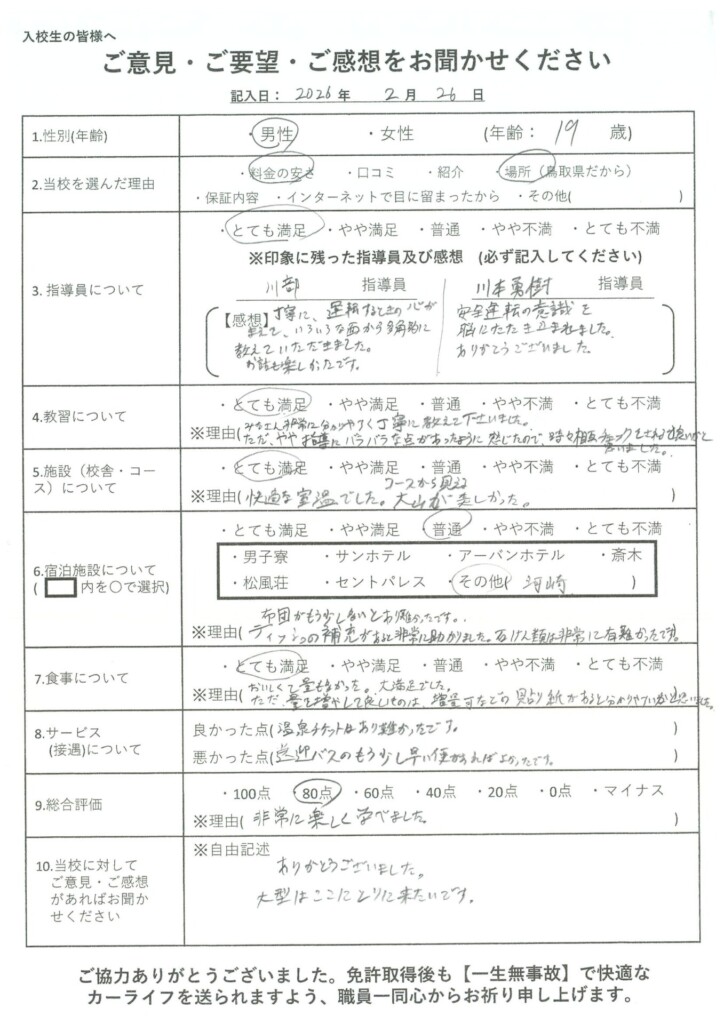 入校生の皆様へ
ご意見・ご要望・ご感想をお聞かせください
記入日： 2026 年 2 月 26 日
1.性別(年齢) ・男性 ・女性 (年齢： 19 歳)
2.当校を選んだ理由 ・料金の安さ ・口コミ ・紹介 ・場所（鳥取県だから）
・保証内容 ・インターネットで目に留まったから ・その他( )
3. 指導員について ・とても満足 ・やや満足 ・普通 ・やや不満 ・とても不満
※印象に残った指導員及び感想 (必ず記入してください)
川部 指導員 川本勇樹 指導員
【感想】丁寧に、運転するときの心が
まえて、いろいろな面から多角的に
教えていただきました。
お話も楽しかったです。
安全運転の意識を
脳にたたき込まれました。
ありがとうございました。
4.教習について ・とても満足 ・やや満足 ・普通 ・やや不満 ・とても不満
みなさん非常に分かりやすく丁寧に教えて下さいました。
※理由(ただ、やや指導にバラバラな点があったように感じたので、時々相互チェックをされると良いかと
思いました。
5.施設（校舎・コース）について ・とても満足 ・やや満足 ・普通 ・やや不満 ・とても不満
コースから見える
※理由(快適な室温でした。大山が美しかった。 )
6.宿泊施設について
( 内を○で選択) ・とても満足 ・やや満足 ・普通 ・やや不満 ・とても不満
・男子寮 ・サンホテル ・アーバンホテル ・斎木
・松風荘 ・セントパレス ・その他( 河崎 )
布団がもう少しないとお難かったです。
※理由(ティッシュの補充があると非常に助かりました。石けん類は非常に有難かったです。
7.食事について ・とても満足 ・やや満足 ・普通 ・やや不満 ・とても不満
おいしくて量も多かった。大満足でした。
※理由(ただ、量を増やして良いものは、増量可などの貼り紙があると分かりやすいかと思いました。
8.サービス
(接遇)について 良かった点(温泉チケットはあり難かったです。 )
悪かった点(送迎バスのもう少し早い便があればよかったです。 )
9.総合評価 ・100点 ・80点 ・60点 ・40点 ・20点 ・0点 ・マイナス
※理由( 非常に楽しく学べました。 )
10.当校に対して
ご意見・ご感想
があればお聞か
せください ※自由記述
ありがとうございました。
大型はここにとりに来たいです。
ご協力ありがとうございました。免許取得後も【一生無事故】で快適な
カーライフを送られますよう、職員一同心からお祈り申し上げます。